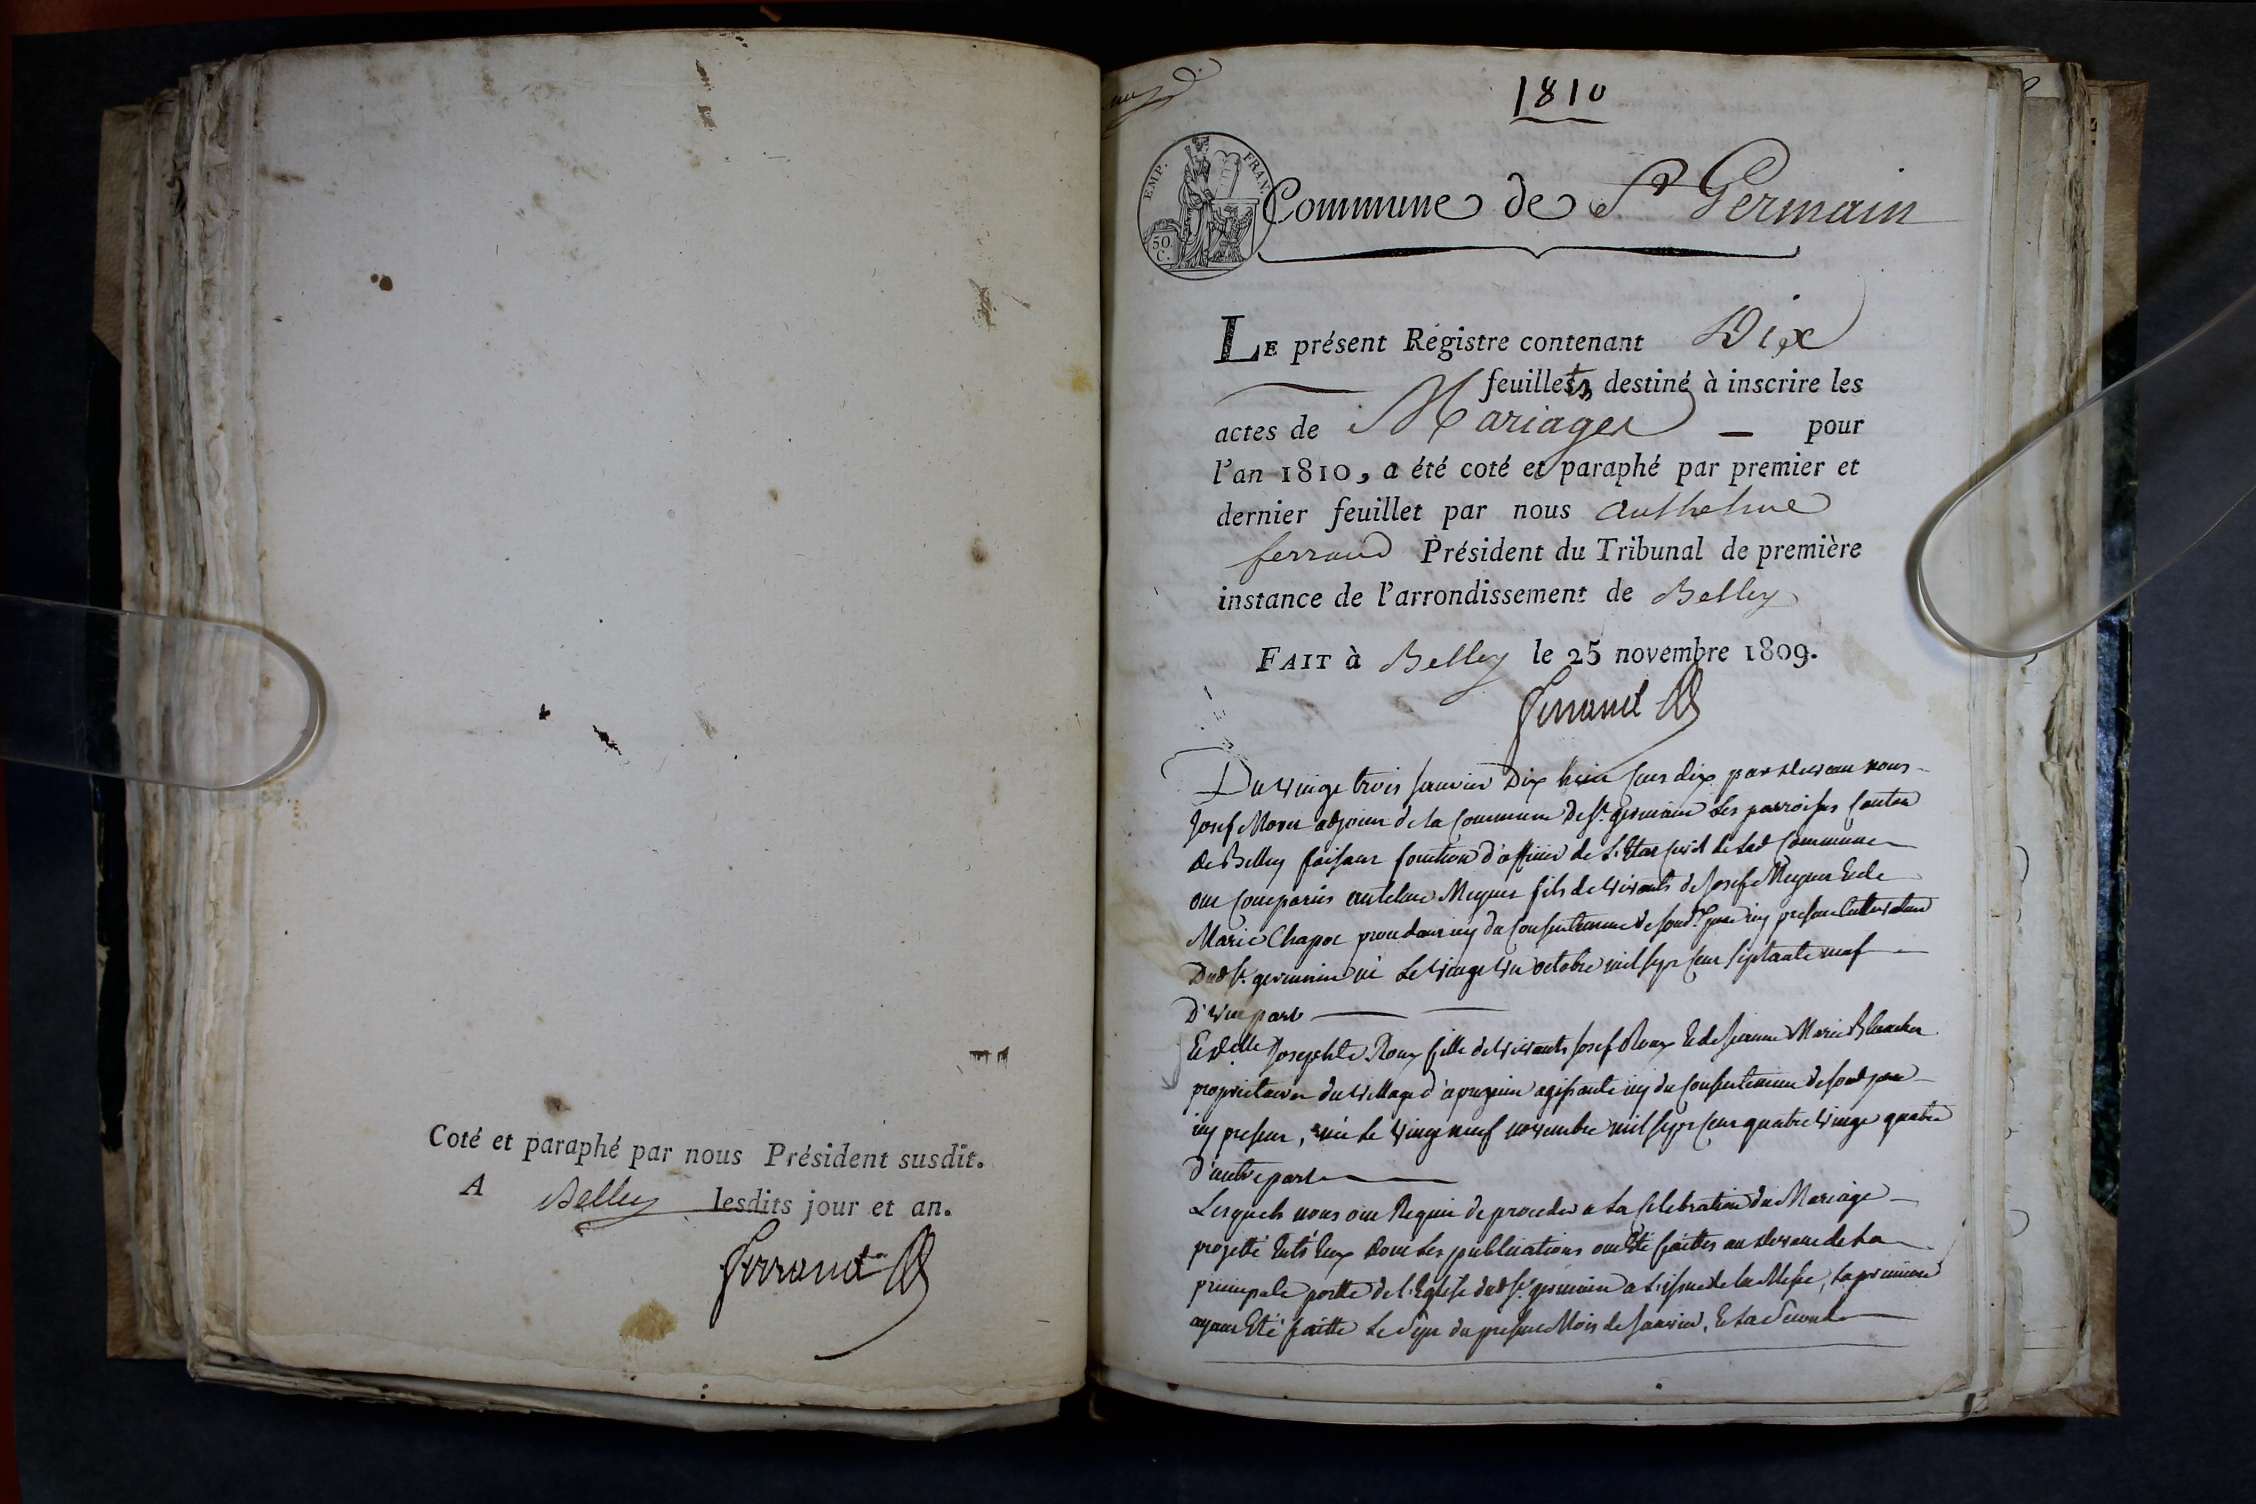 Coté et paraphé par nous Président susdit.
A Belley lesdits jour et an.
Ferrand
1810
EMP. FRAN.
50. C.
Commune de St Germain
LE présent Régistre contenant Dix
feuillets destiné à inscrire les
actes de Mariages — pour
l'an 1810, a été coté et paraphé par premier et
dernier feuillet par nous Anthelme
ferrand Président du Tribunal de première
instance de l'arrondissement de Belley
FAIT à Belley le 25 novembre 1809.
Ferrand
Du vingt trois Janvier Dix huit cens dix par devant nous
Josef adjoint de la Commune de St germain Les parroisses Canton
de Belley faisant fonction d'officier de L'Etat Civil de lad Commune
ont comparus antelme Meynet fils de vivants de Josef Meynet Et de
Marie Chapot du Consentement de son d. pere icy present
Dud St germain né Le vingt un octobre mil sept cent septante neuf
D'une part
Et delle Josephte Roux fille de vivants Josef Roux Et de Jeanne Marie
proprietaires du village d'apregnin agissante icy du Consentement de sond pere
icy present, née le vingt neuf novembre mil sept cent quatre vingt quatre
d'autre part
Lesquels nous ont Requis de proceder a La Celebration du Mariage
projetté Entr'Eux dont Les publications ont Eté faittes au devant de La
principale portte de l'Eglise dud St germain a L'issue de la Messe, La premiere
ayant Eté faitte Le Sept du present Mois de Janvier, Et La Seconde